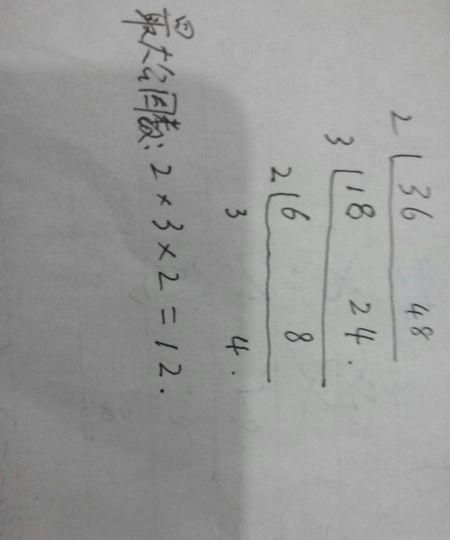 2 36 48
3 18 24.
2 6 8
3 4.
最大公因数: 2×3×2=12.